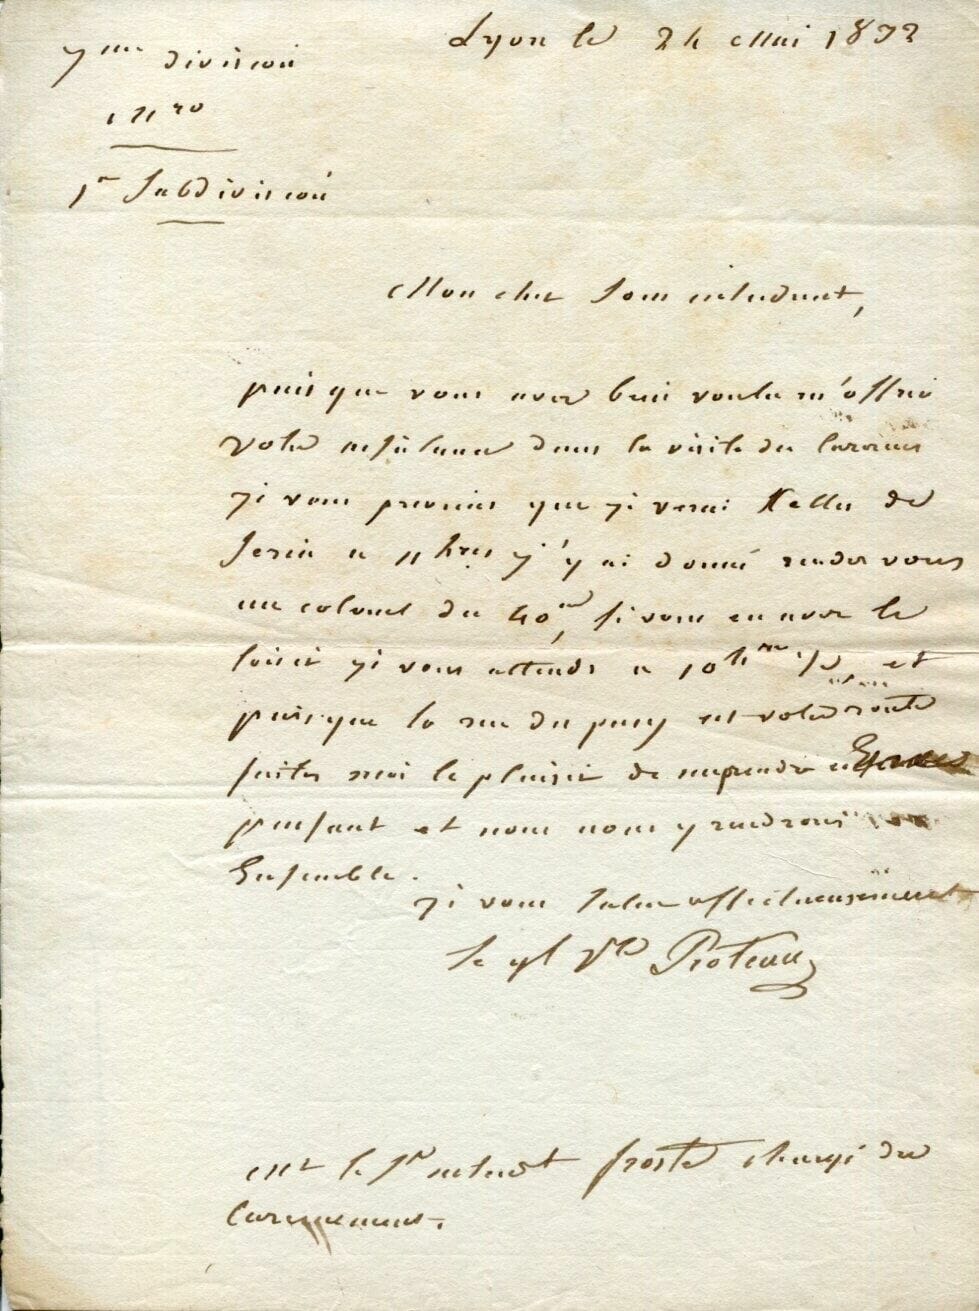 Lyon le 24 Mai 1832
7me division
mre
1re Subdivision
Mon cher Sous intendant,
puisque vous avez bien voulu m'offrir
votre assistance dans la visite des casernes
je vous previens que je verai celles de
Serin a 11 hres j'y ai donné rendez vous
au colonel du 40me, si vous en avez le
loisir je vous attends a 10 hres 1/2 et
puisque la rue du puzy est votre route
faites moi le plaisir de me prendre en
passant et nous nous y rendrons
Ensemble.
je vous salue affectueusement
le gl Vte Proteau
Mr le Ss intendt chargé du
Casernement.